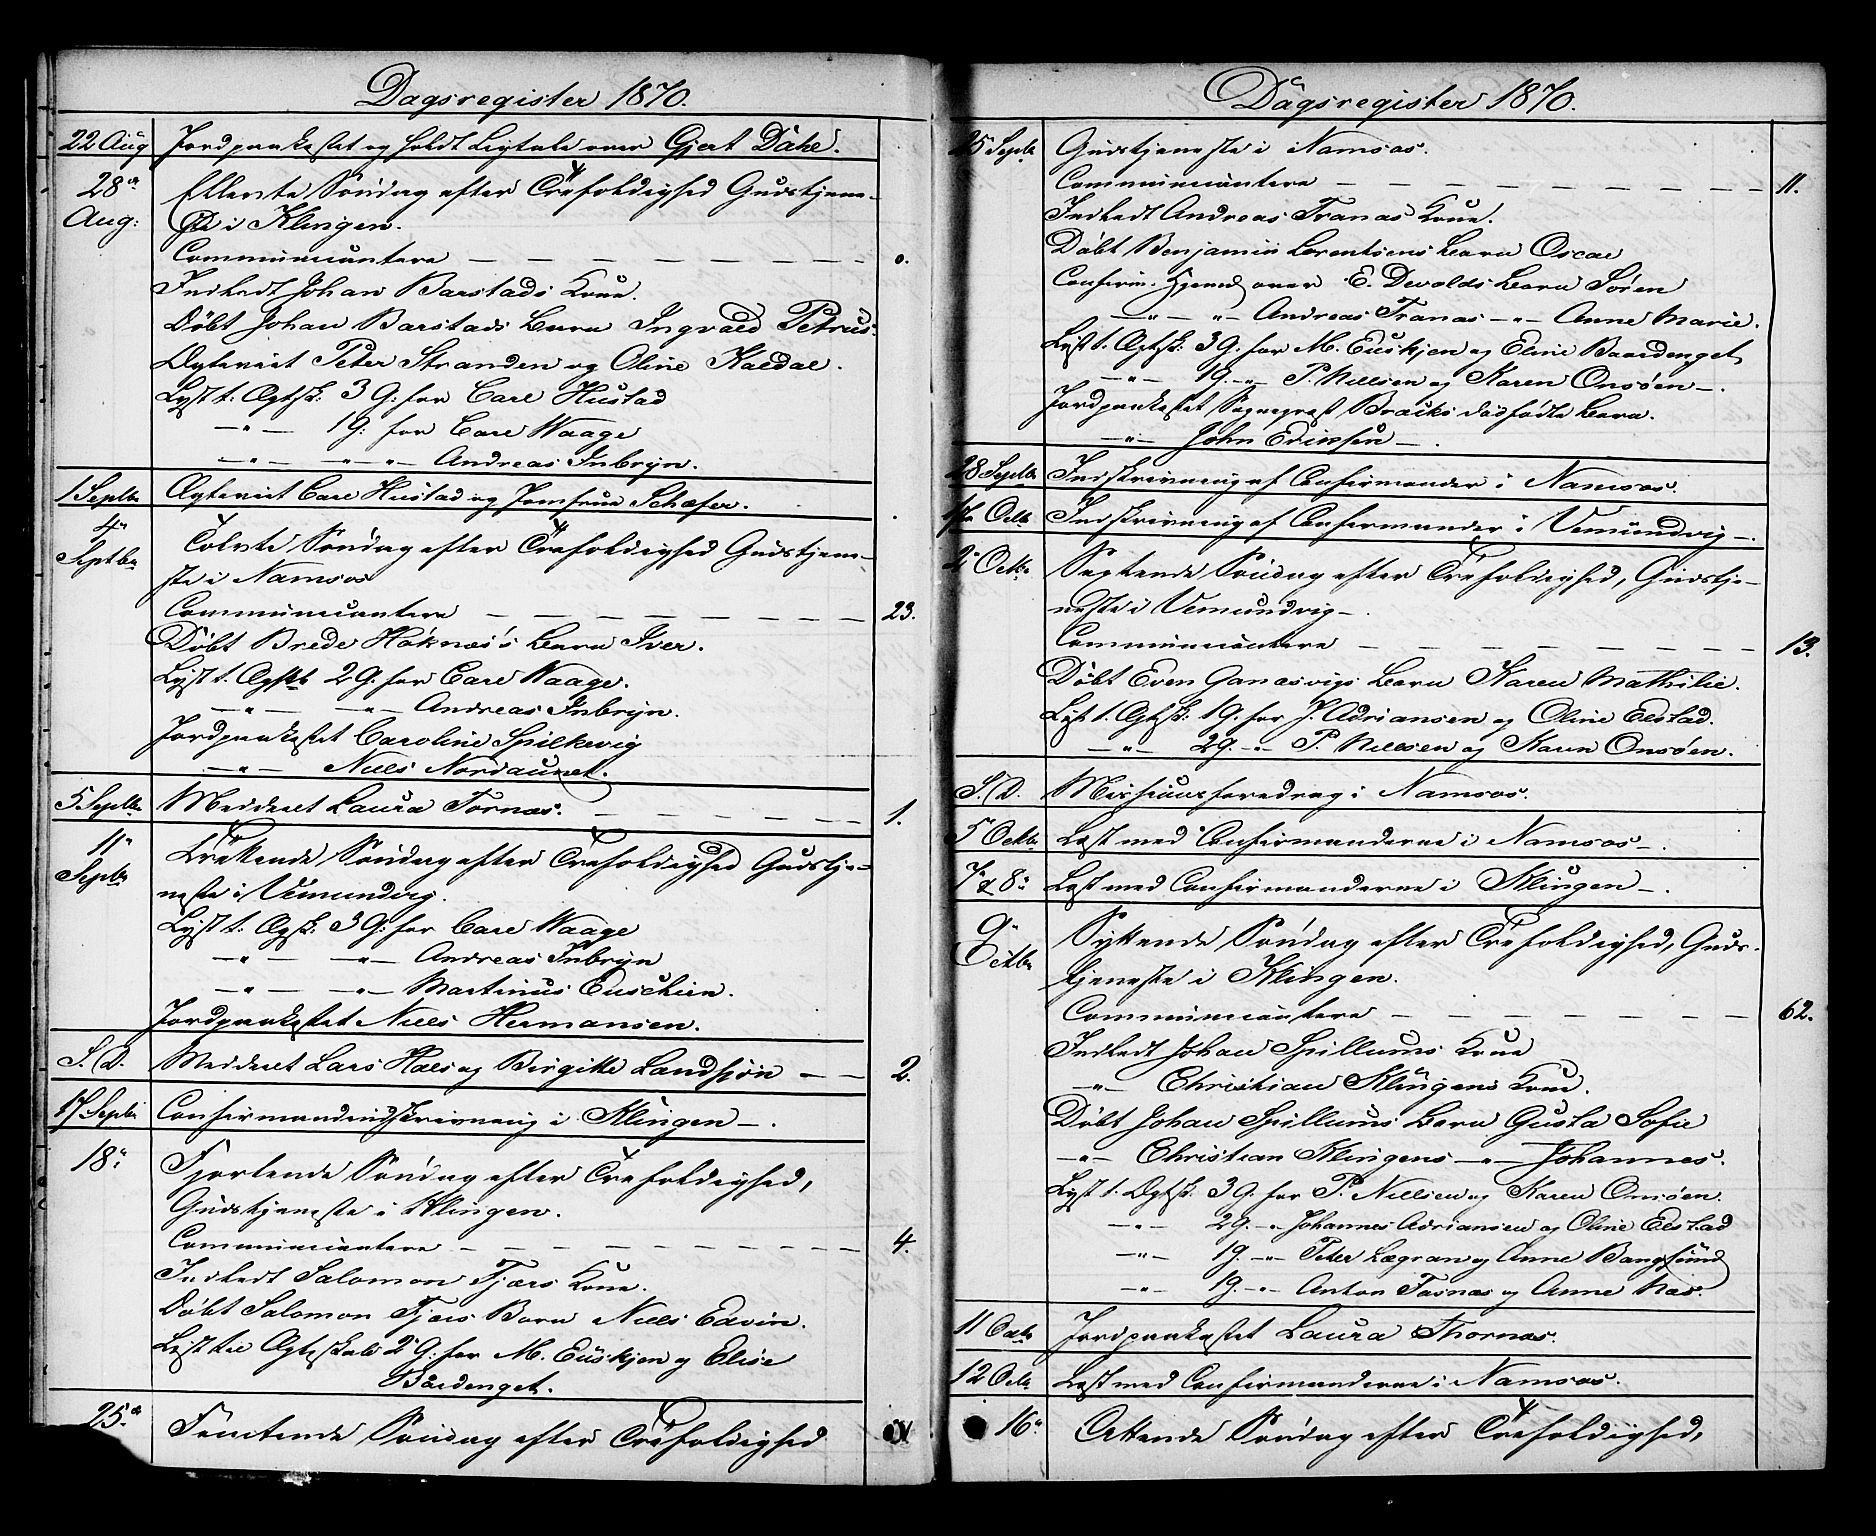 Dagsregister 1870.
22 Aug Jordpaakastet og holdt Ligtale over Gjert Dahl.
28de Aug: Ellevte Søndag efter Trefoldighed Gudstjene-
ste i Klingen.
Communicantere — — — — — — — — 0.
Indledt Johan Barstads Kone.
Døbt Johan Barstads Barn Ingvald Petrus.
Ægteviet Peter Stranden og Oline Kaldal.
Lyst t. Ægtsk: 3 G: for Carl Hustad
—"— 1 G: for Carl Waage
—"— —"— Andreas Inbryn.
1 Septbr Ægteviet Carl Hustad og Jomfrue Schæfer.
4de Septbr Tolvte Søndag efter Trefoldighed Gudstjene-
ste i Namsos
Communicantere — — — — — — — — 23.
Døbt Brede Høknes's Barn Iver.
Lyst t. Ægtsk 2 G: for Carl Waage.
—"— —"— Andreas Inbryn.
Jordpaakastet Caroline Spilkevig
—"— Niels Nordaunet.
5 Septbr Meddelet Laura Tornæs. — — — — — — 1.
11te Septbr Trettende Søndag efter Trefoldighed Gudstje-
neste i Vemundvig.
Lyst t. Ægtsk: 3 G: for Carl Waage
—"— —"— Andreas Inbryn
—"— —"— Martinus Euschien.
Jordpaakastet Niels Hermansen.
S. D. Meddelet Lars Hals og Birgitte Landsjøn — — 2.
17 Septbr Confirmandindskrivning i Klingen —.
18de Fjortende Søndag efter Trefoldighed,
Gudstjeneste i Klingen.
Communicantere — — — — — — — — 4.
Indledt Salomon Fjærs Kone.
Døbt Salomon Fjærs Barn Niels Edvin.
Lyst til Ægteskab 2 G: for M. Euskjen og Elise
Bardenget.
25de Femtende Søndag efter Trefoldighed
Dagsregister 1870.
25 Septbr Gudstjeneste i Namsos.
Communicantere — — — — — — — — 11.
Indledt Andreas Tranas Kone.
Døbt Benjamin Lorentsens Barn Oscar
Confirm. Hjemd. over E. Devolds Barn Søren
—"— " — Andreas Tranas —"— Anne Marie.
Lyst t. Ægtsk: 3 G: for M. Euskjen og Eline Baardenget,
—"— 1 G. —"— P. Nielsen og Karen Onsøen —.
Jordpaakastet Sogneprest Bracks dødfødte Barn.
—"— John Eriksen —.
28 Septbr Indskrivning af Confirmander i Namsos.
1ste Octbr Indskrivning af Confirmander i Vemundvig —.
2 Octbr Sextende Søndag efter Trefoldighed, Gudstje-
neste i Vemundvig —.
Communicantere — — — — — — — — 13.
Døbt Even Ganasvigs Barn Karen Mathilie.
Lyst t. Ægtsk: 1 G. for J. Adriansen og Oline Elstad.
—"— 2 G. —"— P. Nielsen og Karen Onsøen.
S. D. Missionsforedrag i Namsos.
5 Octbr Læst med Confirmanderne i Namsos —.
7de & 8de Læst med Confirmanderne i Klingen —.
9de Octbr Syttende Søndag efter Trefoldighed, Guds-
tjeneste i Klingen.
Communicantere — — — — — — — — 62.
Indledt Johan Spillums Kone
—"— Christian Klingens Kone.
Døbt Johan Spillums Barn Gusta Sofie
—"— Christian Klingens —"— Johannes.
Lyst t. Ægtsk. 3 G. for P. Nielsen og Karen Onsøen.
—"— 2 G. —"— Johannes Adriansen og Oline Elstad
—"— 1 G. —"— Peter Lægran og Anne Bangsund
—"— 1 G. —"— Anton Fasnæs og Anne Næs.
11 Octbr Jordpaakastet Laura Thornæs.
12 Octbr Læst med Confirmanderne i Namsos.
16de Attende Søndag efter Trefoldighed,